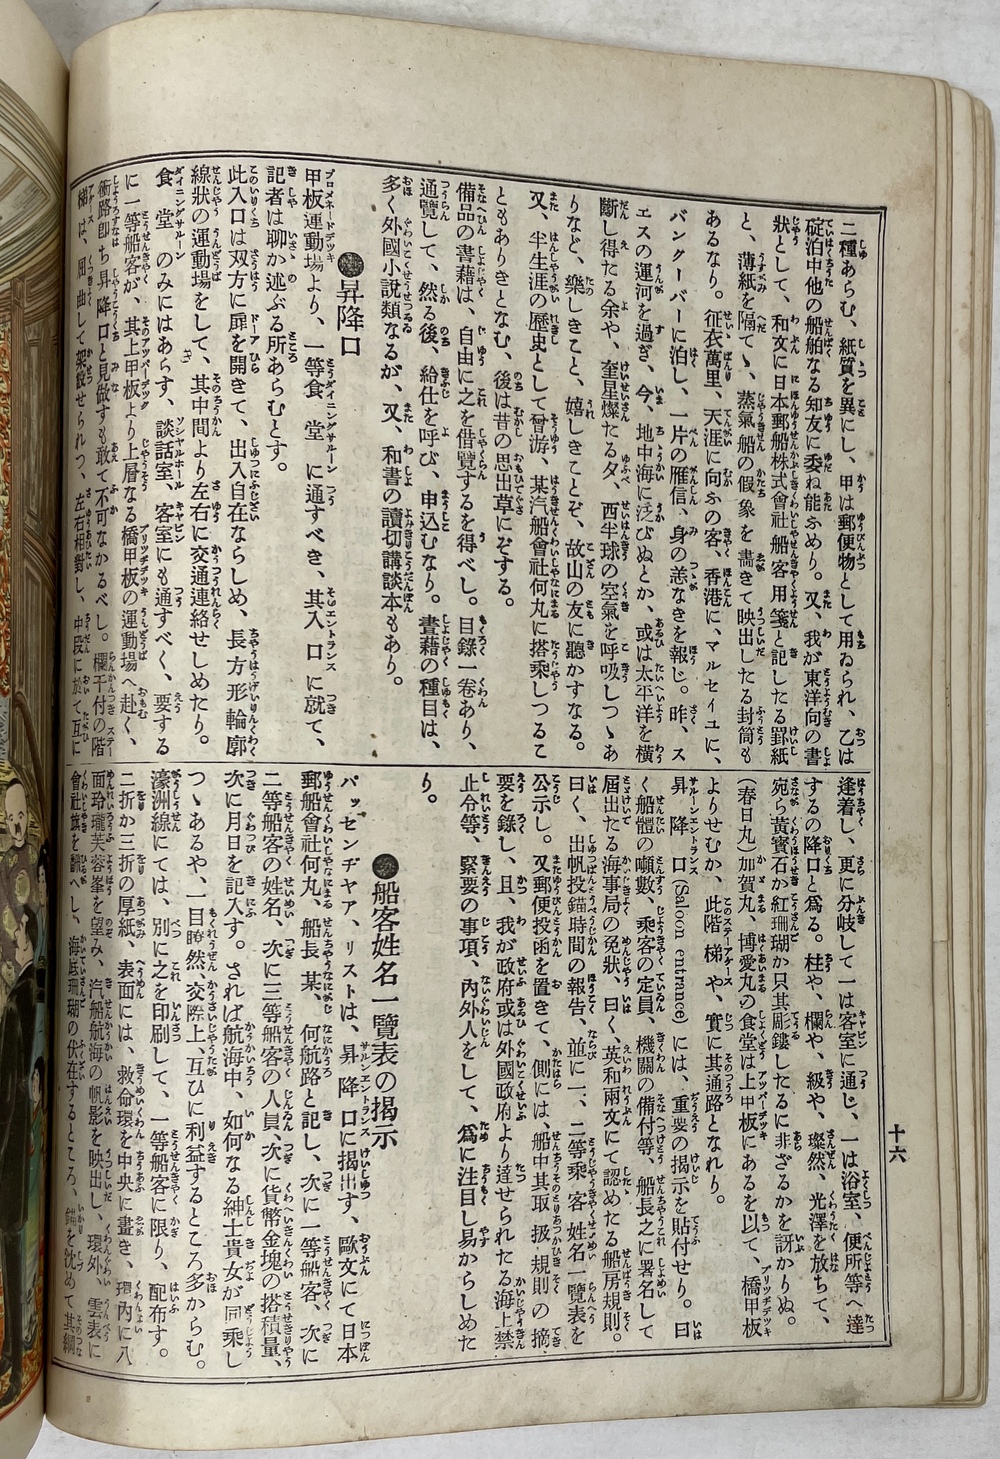 十六
二種あらむ、紙質を異にし、甲は郵便物として用ゐられ、乙は
碇泊中他の船舶なる知友に委ね能ふめり。又、我が東洋向の書
狀として、和文に日本郵船株式會社船客用箋と記したる罫紙
と、薄紙を隔てゝ、蒸氣船の假象を畵きて映出したる封筒も
あるなり。征衣萬里、天涯に向ふの客、香港に、マルセイユに、
バンクーバーに泊し、一片の雁信、身の恙なきを報じ。昨、ス
エスの運河を過ぎ、今、地中海に泛びぬとか、或は太平洋を橫
斷し得たる余や、奎星燦たる夕、西半球の空氣を呼吸しつゝあ
りなど、樂しきこと、嬉しきことぞ、故山の友に聽かすなる。
又、半生涯の歷史として曾游、某汽船會社何丸に搭乘しつるこ
ともありきとなむ、後は昔の思出草にぞする。
備品の書藉は、自由に之を借覽するを得べし。目錄一卷あり、
通覽して、然る後、給仕を呼び、申込むなり。書藉の種目は、
多く外國小說類なるが、又、和書の讀切講談本もあり。
●昇降口
甲板運動場より、一等食堂に通すべき、其入口に就て、
記者は聊か述ぶる所あらむとす。
此入口は双方に扉を開きて、出入自在ならしめ、長方形輪廓
線狀の運動場をして、其中間より左右に交通連絡せしめたり。
食堂のみにはあらす、談話室、客室にも通すべく、要する
に一等船客が、其上甲板より上層なる橋甲板の運動場へ赴く、
衝路卽ち昇降口と見做すも敢て不可なかるべし。欄干付の階
梯は、屈曲して架設せられつ、左右相對し、中段に於て互に
逢着し、更に分岐して一は客室に通じ、一は浴室、便所等へ達
するの降口と爲る。柱や、欄や、級や、璨然、光澤を放ちて、
宛ら黃寶石か紅珊瑚か只其彫鏤したるに非ざるかを訝かりぬ。
(春日丸)加賀丸、博愛丸の食堂は上中板にあるを以て、橋甲板
よりせむか、此階梯や、實に其通路となれり。
昇降口(Saloon entrance)には、重要の揭示を貼付せり。曰
く船體の噸數、乘客の定員、機關の備付等、船長之に署名して
屆出たる海事局の免狀、曰く、英和兩文にて認めたる船房規則。
曰く、出帆投錨時間の報告、並に一、二等乘客姓名一覽表を
公示し。又郵便投函を置きて、側には、船中其取扱規則の摘
要を錄し、且、我が政府或は外國政府より達せられたる海上禁
止令等、緊要の事項、內外人をして、爲に注目し易からしめた
り。
●船客姓名一覽表の揭示
パッセンヂヤア、リストは、昇降口に揭出す、歐文にて日本
郵船會社何丸、船長某、何航路と記し、次に一等船客、次に
二等船客の姓名、次に三等船客の人員、次に貨幣金塊の搭積量、
次に月日を記入す。されば航海中、如何なる紳士貴女が同乘し
つゝあるや、一目瞭然、交際上、互ひに利益するところ多からむ。
濠洲線にては、別に之を印刷して、一等船客に限り、配布す。
二折か三折の厚紙、表面には、救命環を中央に畫き、環內に八
面玲瓏芙蓉峯を望み、汽船航海の帆影を映出し、環外、雲表に
會社旗を飜へし、海底珊瑚の伏在するところ、錨を沈めて其綱